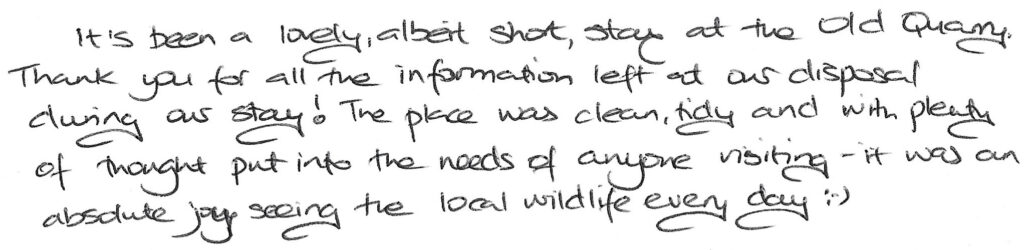 It's been a lovely, albeit short, stay at the Old Quarry.
Thank you for all the information left at our disposal
during our stay! The place was clean, tidy and with plenty
of thought put into the needs of anyone visiting - it was an
absolute joy seeing the local wildlife every day :-)